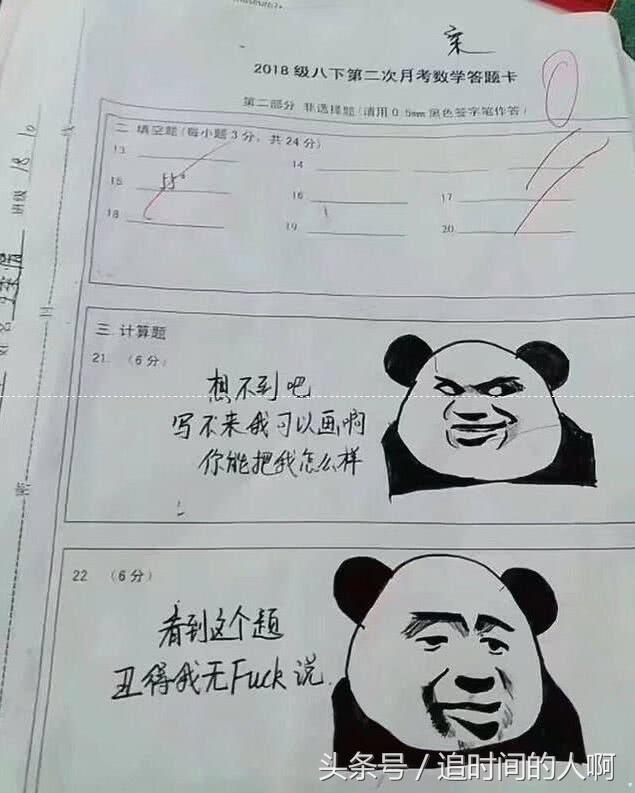 2018级八下第二次月考数学答题卡
第二部分 非选择题(请用0.5mm黑色签字笔作答)
二 填空题(每小题3分，共24分)
13 14
15 55° 16 17
18 19 20
三 计算题
21. (6分)
想不到吧
写不来我可以画啊
你能把我怎么样
22 (6分)
看到这个题
丑得我无Fuck说
班级 18 10
头条号 / 追时间的人啊